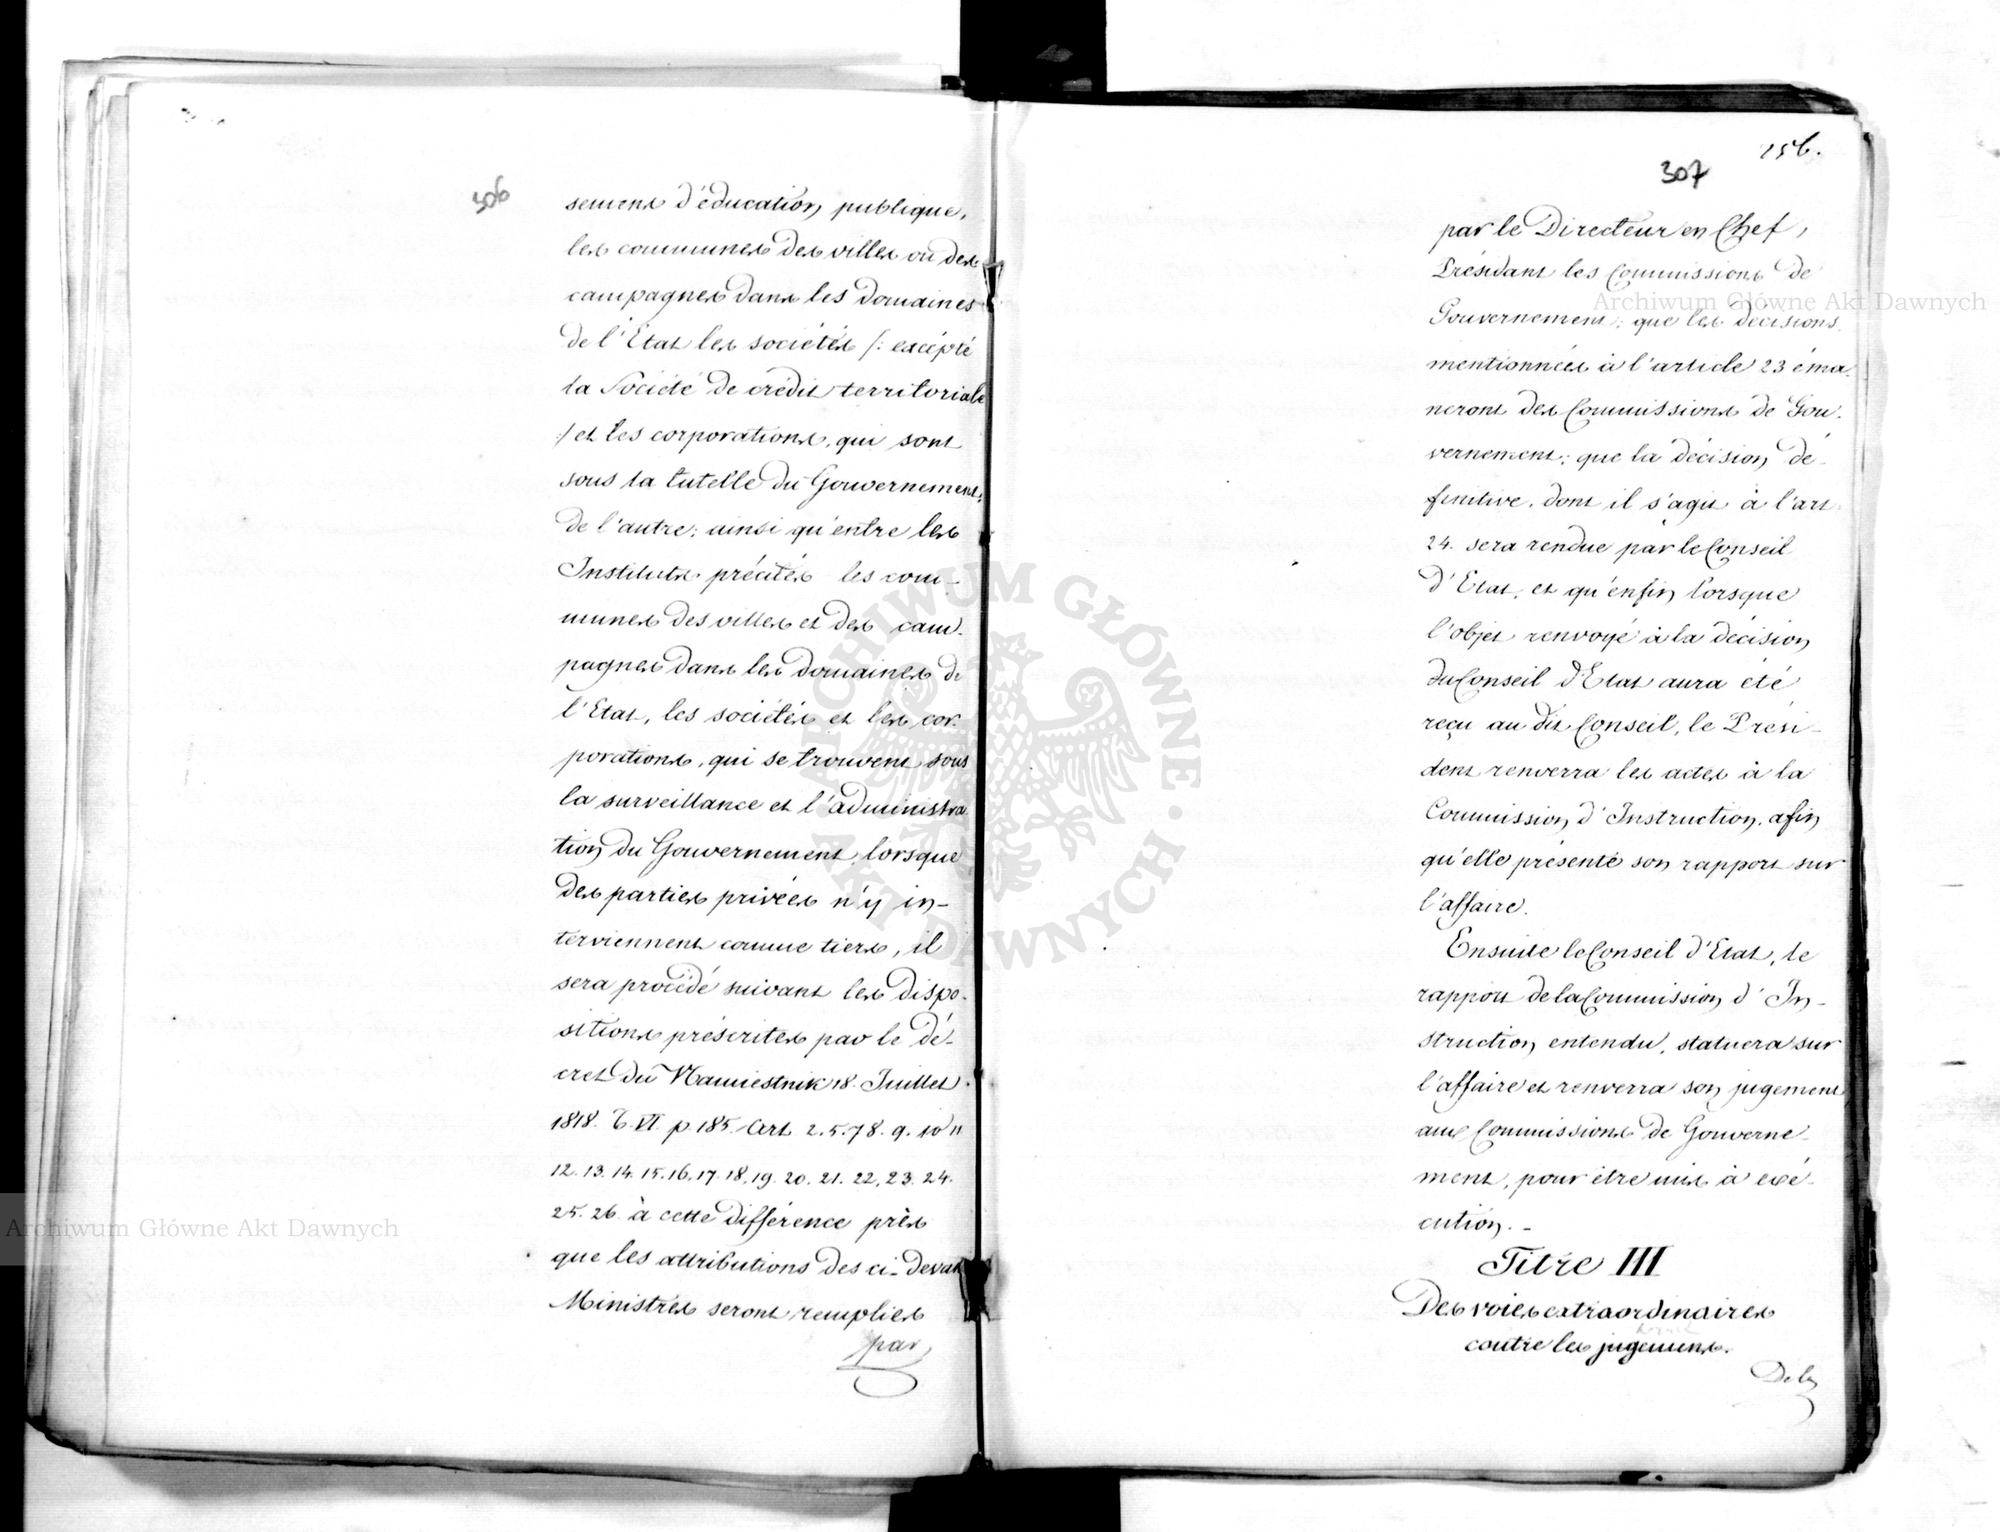 306
sement d'éducation publique,
les communes des villes ou des
campagnes dans les domaines
de l'Etat les sociétés /: excépté
la Société de crédit territoriale
:/ et les corporations, qui sont
sous la tutelle du Gouvernement;
de l'autre; ainsi qu'entre les
Instituts précités les com-
munes des villes et des cam-
pagnes dans les domaines de
l'Etat, les sociétés et les cor-
porations, qui se trouvent sous
la surveillance et l'administra-
tion du Gouvernement, lorsque
des parties privées n'y in-
terviennent comme tiers, il
sera procédé suivant les dispo-
sitions préscrites par le dé-
cret du Namiestnik 18. Juillet
1818. T. VI. p. 185. Art. 2. 5. 7 8. 9. 10 11
12. 13. 14. 15. 16. 17. 18. 19. 20. 21. 22. 23. 24.
25. 26. à cette différence près
que les attributions des ci-devant
Ministres seront remplies
par
156.
307
par le Directeur en Chef,
Présidant les Commissions de
Gouvernement; que les décisions
mentionnées à l'article 23 éma-
neront des Commissions de Gou-
vernement; que la décision dé-
finitive, dont il s'agit à l'art.
24. sera rendue par le Conseil
d'Etat, et qu'enfin lorsque
l'objet renvoyé à la décision
du Conseil d'Etat aura été
reçu au dit Conseil, le Prési-
dent renverra les actes à la
Commission d'Instruction, afin
qu'elle présente son rapport sur
l'affaire.
Ensuite le Conseil d'Etat, le
rapport de la Commission d'In-
struction entendu, statuera sur
l'affaire et renverra son jugement
aux Commissions de Gouverne-
ment, pour être mis à exé-
cution. -
Titre III
Des voies extraordinaires
contre les jugemens.
De la
Archiwum Główne Akt Dawnych
Archiwum Główne Akt Dawnych
ARCHIWUM GŁÓWNE AKT DAWNYCH